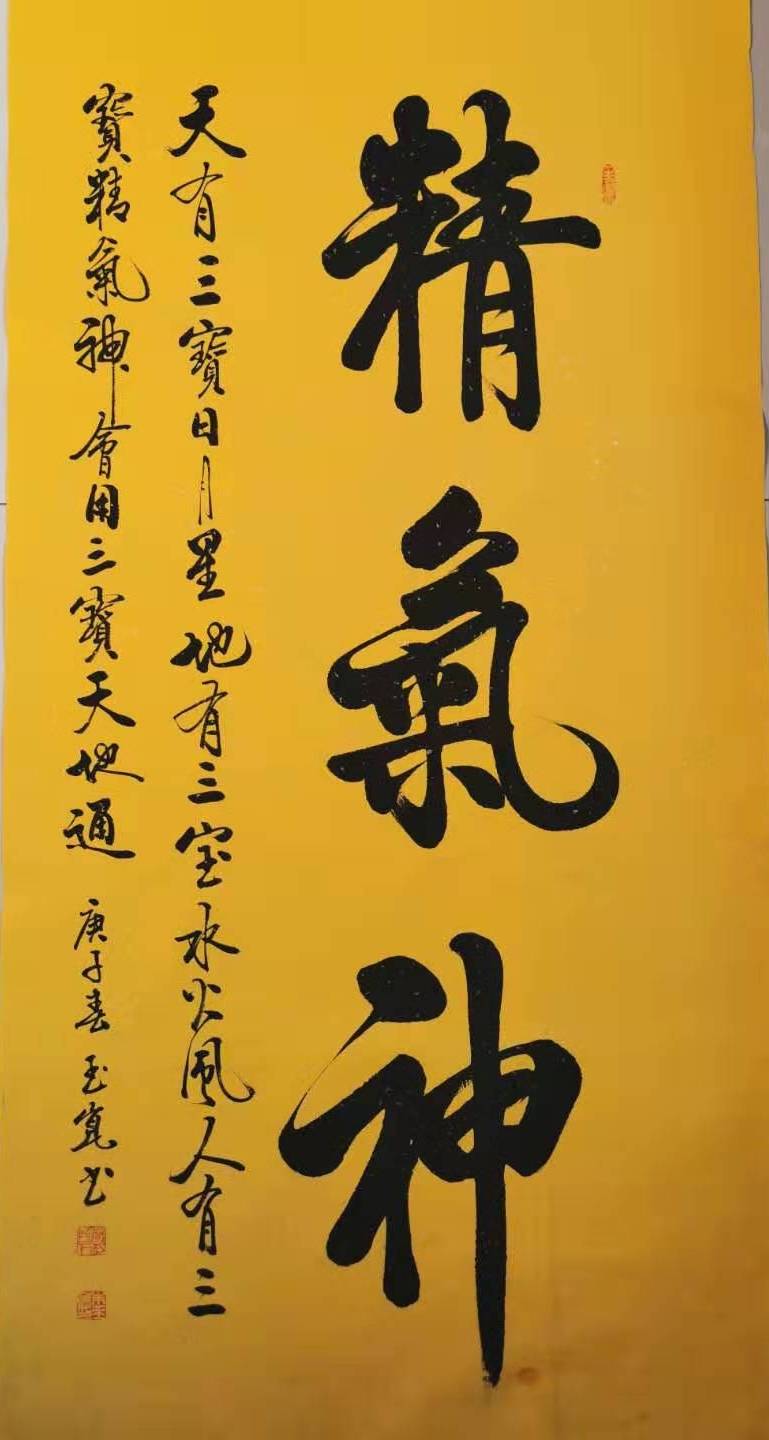 精氣神
天有三寶日月星地有三宝水火風人有三
寶精氣神會用三寶天地通
庚子春玉寬书